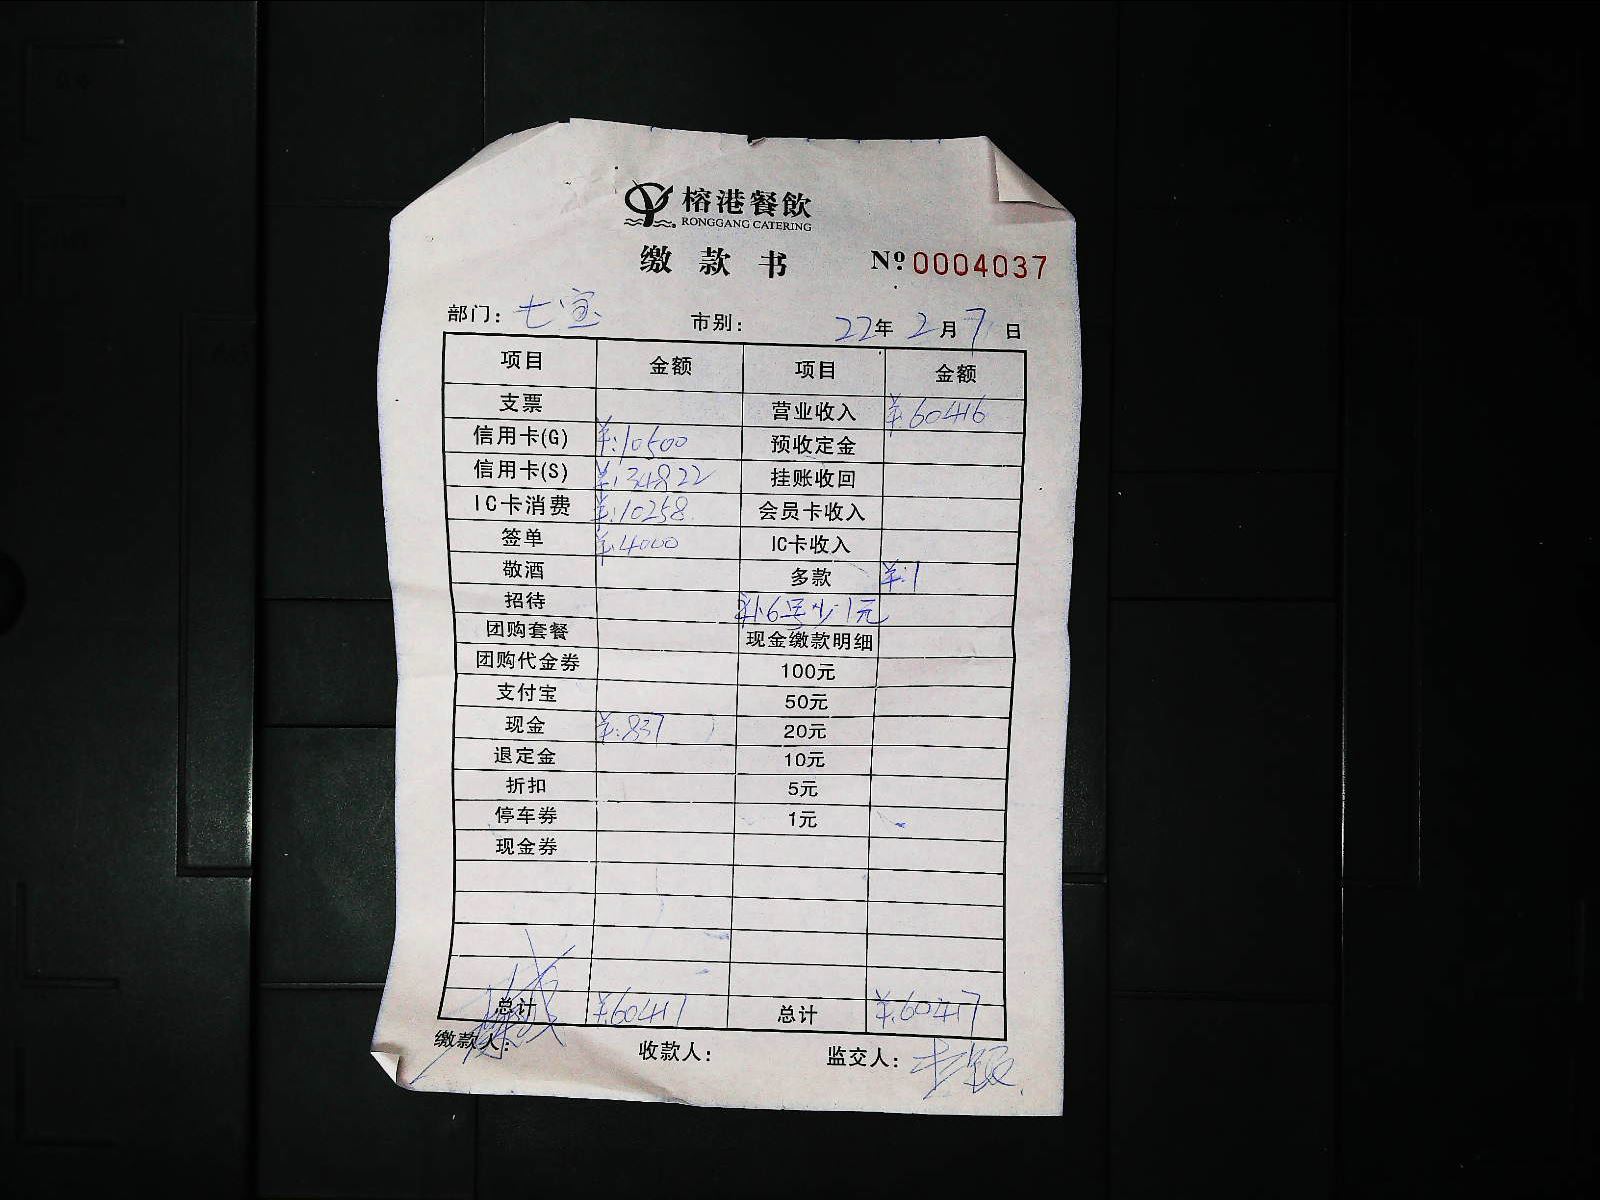 榕港餐飲
RONGGANG CATERING
缴款书 Nº 0004037
部门: 七宝 市别: 22年2月7日
项目 金额 项目 金额
支票 营业收入 ¥:60416
信用卡(G) ¥:10500 预收定金
信用卡(S) ¥:34822 挂账收回
IC卡消费 ¥:10258 会员卡收入
签单 ¥:4000 IC卡收入
敬酒 多款 ¥:1
招待 补6号少1元
团购套餐 现金缴款明细
团购代金券 100元
支付宝 50元
现金 ¥:837 20元
退定金 10元
折扣 5元
停车券 1元
现金券
总计 ¥:60417 总计 ¥:60417
缴款人: 收款人: 监交人: